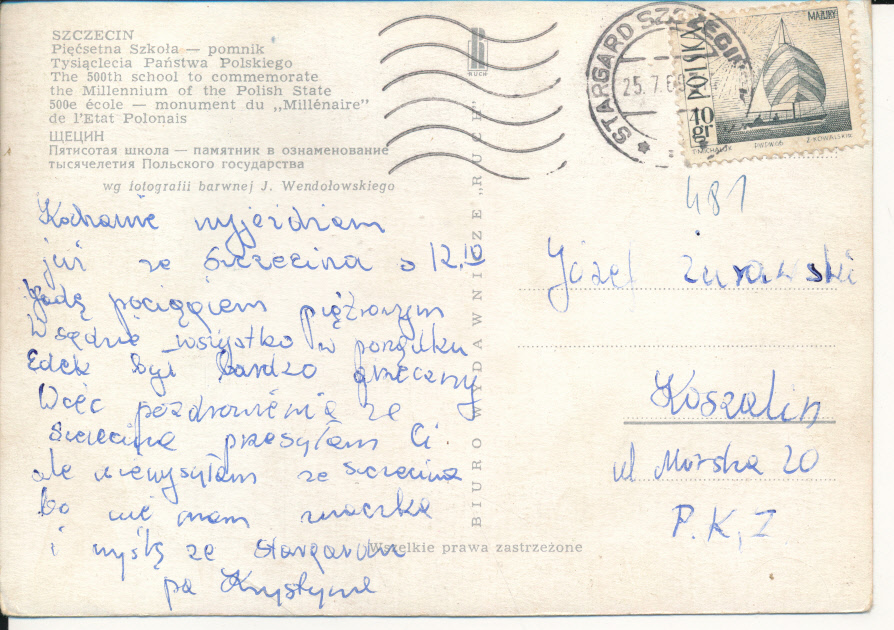 SZCZECIN
Pięćsetna Szkoła — pomnik
Tysiąclecia Państwa Polskiego
The 500th school to commemorate
the Millennium of the Polish State
500e école — monument du „Millénaire”
de l'Etat Polonais
ЩЕЦИН
Пятисотая школа — памятник в ознаменование
тысячелетия Польского государства
wg fotografii barwnej J. Wendołowskiego
Kochanie wyjeżdżam
już ze Szczecina o 12.10
Jadę pociągiem
wszystko w porządku
Edek był bardzo grzeczny
Więc pozdrowienia ze
Szczecina przesyłam Ci.
ale niewysyłam ze Szczecina
bo nie mam znaczka
i wyślę ze Stargardu
pa Krystyna
RUCH
BIURO WYDAWNICZE „RUCH”
Wszelkie prawa zastrzeżone
STARGARD SZCZECIŃ
25.7.6
POLSKA
MAZURY
40 gr
PWPW 66
481
Józef Żurawski
Koszalin
ul Morska 20
P.K,Z